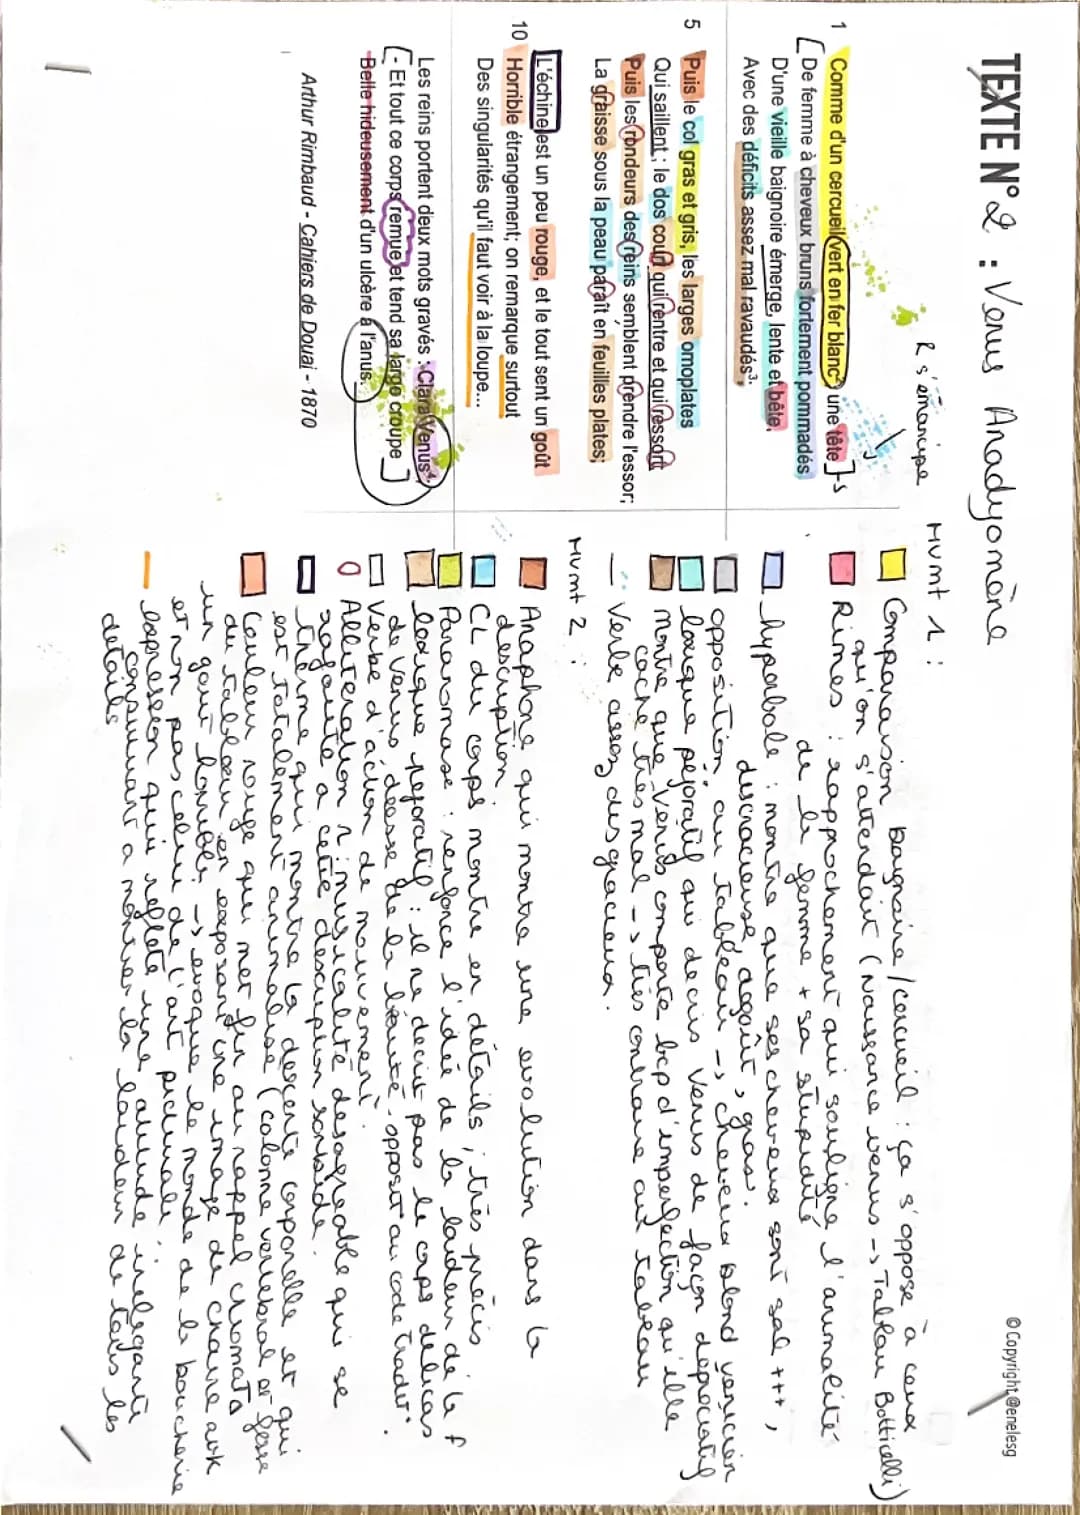 TEXTE N°2 : Venus Anadyomène
© Copyright @enelesg
R s'émancipe
1 Comme d'un cercueil vert en fer blanc², une tête
De femme à cheveux bruns fortement pommadés
D'une vieille baignoire émerge, lente et bête,
Avec des déficits assez mal ravaudés³;
5 Puis le col gras et gris, les larges omoplates
Qui saillent ; le dos court qui rentre et qui ressort
Puis les rondeurs des reins semblent prendre l'essor;
La graisse sous la peau paraît en feuilles plates;
L'échine est un peu rouge, et le tout sent un goût
10 Horrible étrangement; on remarque surtout
Des singularités qu'il faut voir à la loupe...
Les reins portent deux mots gravés : Clara Venus⁴;
- Et tout ce corps remue et tend sa large croupe
Belle hideusement d'un ulcère à l'anus.
Arthur Rimbaud - Cahiers de Douai - 1870
Mvmt 1 :
Comparaison baignoire / cercueil : ça s'oppose à ceux
qu'on s'attendait (Naissance venus -> Tableau Botticelli)
Rimes : rapprochement qui souligne l'animalité
de la femme + sa stupidité
hyperbole : montre que ses cheveux sont sal +++,
disgracieuse, dégoût, gras.
opposition au tableau -> cheveux blond venicien
lexique péjoratif qui decris Venus de façon depreciatif
montre que Venus comporte bcp d'imperfection qu'elle
cache très mal -> très contraire au tableau
Verbe assez disgracieux.
Mvmt 2 :
Anaphore qui montre une evolution dans la
description
CL du corps montre en détails ; très précis
Paranomase : renforce l'idée de la laideur de la f
lexique péjoratif : il ne décrit pas le corps délicas
de Venus déesse de la beauté. opposit au code tradit°.
Verbe d'action de mouvement.
Alliteration r : musicalité desagreable qui se
rajoute a cette description sordide.
thème qui montre la descente corporelle et qui
est totalement animalisé (colonne vertebral et fesse
Couleur rouge qui met fin au rappel chromats
du tableau en exposant une image de chaire avk
un gout horrible -> evoque le monde de la boucherie
et non pas celui de l'art picturale.
expression qui reflète une attitude inelegante
consistant a montrer la laideur de tous les
détails